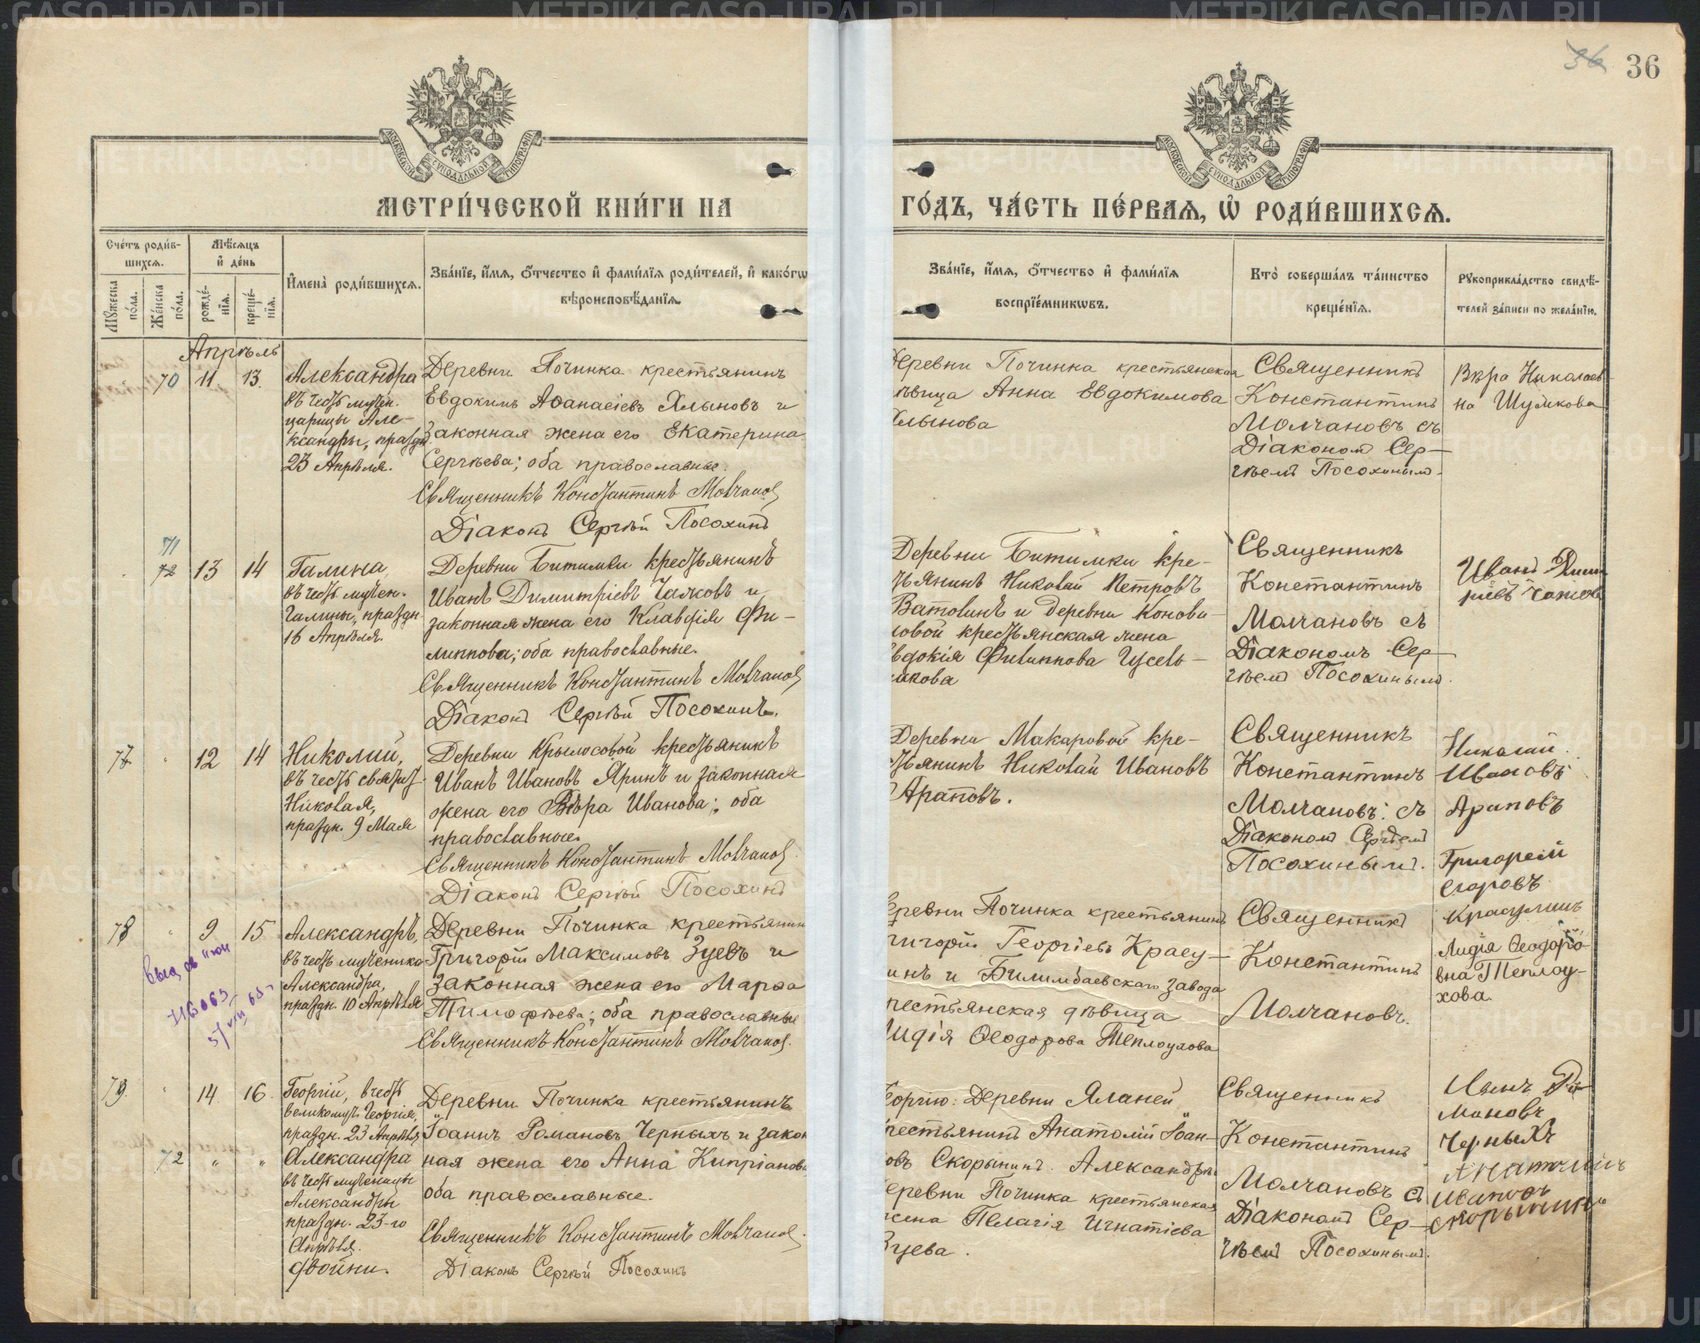 36 36
МЕТРИ́ЧЕСКОЙ КНИ́ГИ НА ГО́ДЪ, ЧА́СТЬ ПЕ́РВАѦ, Ѡ҆ РОДИ́ВШИХСѦ.
Сче́тъ роди́вшихсѧ.
Мꙋ́жеска по́ла.
Же́нска по́ла.
Мѣ́сѧцъ и҆ де́нь
рожде́нїѧ.
креще́нїѧ.
И҆мена̀ роди́вшихсѧ.
Зва́нїе, и҆́мѧ, ѻ҆́тчество и҆ фами́лїѧ роди́телей, и҆ како́гѡ
вѣроисповѣ́данїѧ.
Зва́нїе, и҆́мѧ, ѻ҆́тчество и҆ фами́лїѧ
воспрїе́мникѡвъ.
Кто̀ соверша́лъ та́инство
креще́нїѧ.
Рꙋкоприкла́дство свидѣ́-
телей за́писи по жела́нїю.
Апрѣль
70 11 13.
Александра
въ честь мучен.
царицы Але-
ксандры, праздн.
23 Апрѣля.
Деревни Починка крестьянинъ
Евдокимъ Аѳанасіевъ Хлыновъ и
законная жена его Екатерина
Сергѣева; оба православные.
Священникъ Константинъ Молчановъ
Діаконъ Сергѣй Посохинъ
Деревни Починка крестьянская
дѣвица Анна Евдокимова
Хлынова
Священникъ
Константинъ
Молчановъ съ
Діакономъ Сер-
гѣемъ Посохинымъ.
Вѣра Николаев-
на Шумкова
71
72 13 14
Галина,
въ честь мучен.
Галины, праздн.
16 Апрѣля.
Деревни Битимки крестьянинъ
Иванъ Димитріевъ Чажовъ и
законная жена его Клавдія Фи-
липпова; оба православные.
Священникъ Константинъ Молчановъ
Діаконъ Сергѣй Посохинъ.
Деревни Битимки кре-
стьянинъ Николай Петровъ
Ватолинъ и деревни Конова-
ловой крестьянская жена
Евдокія Филиппова Гусель-
никова
Священникъ
Константинъ
Молчановъ съ
Діакономъ Сер-
гѣемъ Посохинымъ.
Иванъ Дмит
ріевъ Чажов
77 12 14
Николай,
въ честь святит.
Николая,
праздн. 9 Мая
Деревни Крылосовой крестьянинъ
Иванъ Ивановъ Яринъ и законная
жена его Вѣра Иванова; оба
православные.
Священникъ Константинъ Молчановъ.
Діаконъ Сергѣй Посохинъ
Деревни Макаровой кре-
стьянинъ Николай Ивановъ
Араповъ.
Священникъ
Константинъ
Молчановъ съ
Діакономъ Сергѣемъ
Посохинымъ.
Николай
Ивановъ
Араповъ
78 9 15
Александръ,
въ честь мученика
Александра,
праздн. 10 Апрѣля
Деревни Починка крестьянин
Григорій Максимовъ Зуевъ и
законная жена его Марѳа
Тимоѳеева; оба православные
Священникъ Константинъ Молчановъ.
Деревни Починка крестьянинъ
Григорій Георгіевъ Красу-
инъ и Билимбаевскаго завода
крестьянская дѣвица
Лидія Ѳеодорова Теплоухова
Священникъ
Константинъ
Молчановъ.
Григорій
Егоровъ
Красулинъ
Лидія Ѳеодоро-
вна Теплоу-
хова.
79 14 16
Георгій, въ честь
великомуч. Георгія,
праздн. 23 Апрѣля,
72 " "
Александра
въ честь мученицы
Александры
праздн. 23-го
Апрѣля.
двойни.
Деревни Починка крестьянинъ
Іоаннъ Романовъ Черныхъ и закон
ная жена его Анна Кипріанова
оба православные.
Священникъ Константинъ Молчановъ.
Діаконъ Сергѣй Посохинъ
Георгію: Деревни Яланей
крестьянинъ Анатолій Іоан-
новъ Скорынинъ. Александрѣ:
деревни Починка крестьянская
жена Пелагія Игнатіева
Зуева.
Священникъ
Константинъ
Молчановъ съ
Діакономъ Сер-
гѣемъ Посохинымъ.
Иванъ Ро
мановъ
Черныхъ
Анатолій
Ивановъ
Скорынинъ
METRIKI.GASO-URAL.RU